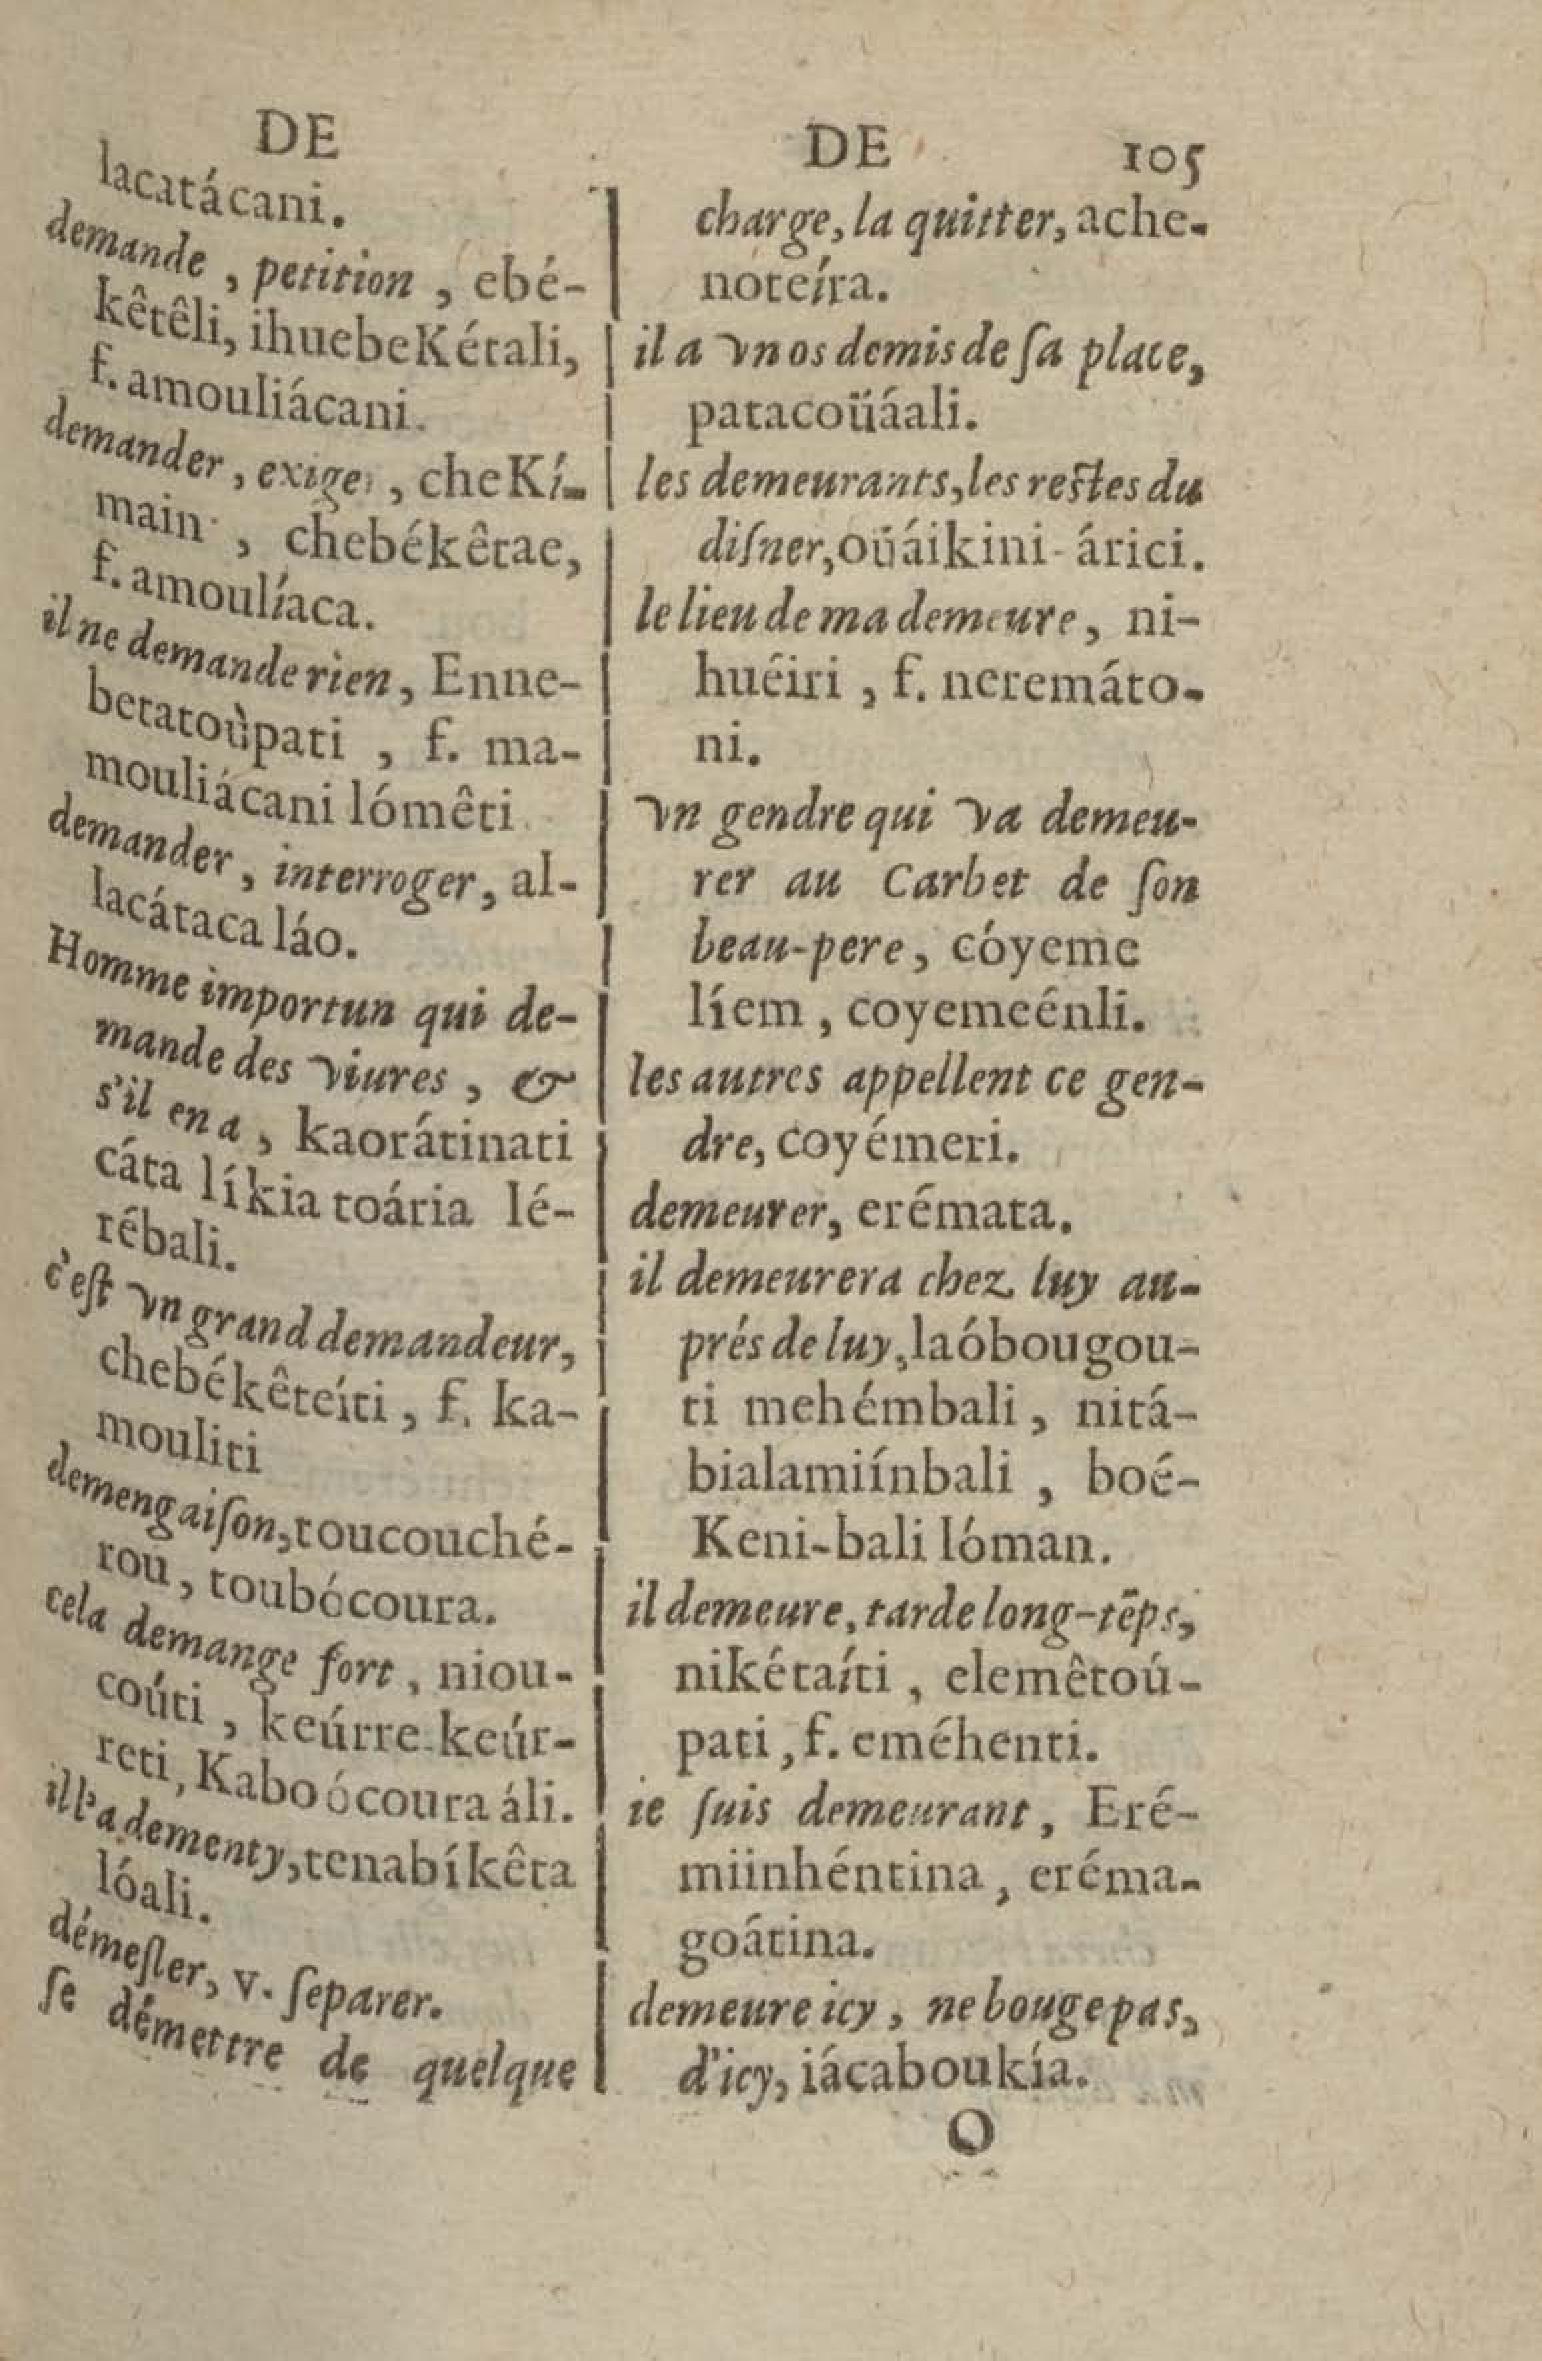 DE
lacatácani.
demande, petition, ebé-
kêtêli, ihuebeKétali,
f. amouliácani.
demander, exiger, cheKí-
main, chebékêtae,
f. amoulíaca.
il ne demande rien, Enne-
betatoùpati, f. ma-
mouliácani lómêti
demander, interroger, al-
lacátaca láo.
Homme importun qui de-
mande des viures, &
s'il en a, kaorátinati
cáta líkia toária lé-
rébali.
c'eſt vn grand demandeur,
chebékêteíti, f. ka-
mouliti
demengaiſon, toucouché-
rou, toubócoura.
cela demange fort, niou-
coúti, keúrre-keúr-
reti, Kaboócoura áli.
il l'a dementy, tenabíkêta
lóali.
démeſler, v. ſeparer.
ſe démettre de quelque
DE 105
charge, la quitter, ache-
noteíra.
il a vn os demis de ſa place,
patacoüáali.
les demeurants, les reſtes du
diſner, oüáikini-árici.
le lieu de ma demeure, ni-
huéiri, f. neremáto-
ni.
vn gendre qui va demeu-
rer au Carbet de ſon
beau-pere, cóyeme
líem, coyemeénli.
les autres appellent ce gen-
dre, coyémeri.
demeurer, erémata.
il demeurera chez luy au-
prés de luy, laóbougou-
ti mehémbali, nitá-
bialamiínbali, boé-
Keni-bali lóman.
il demeure, tarde long-tēps,
nikétaíti, elemêtoú-
pati, f. eméhenti.
ie ſuis demeurant, Eré-
miinhéntina, eréma-
goátina.
demeure icy, ne bouge pas,
d'icy, iácaboukía.
O